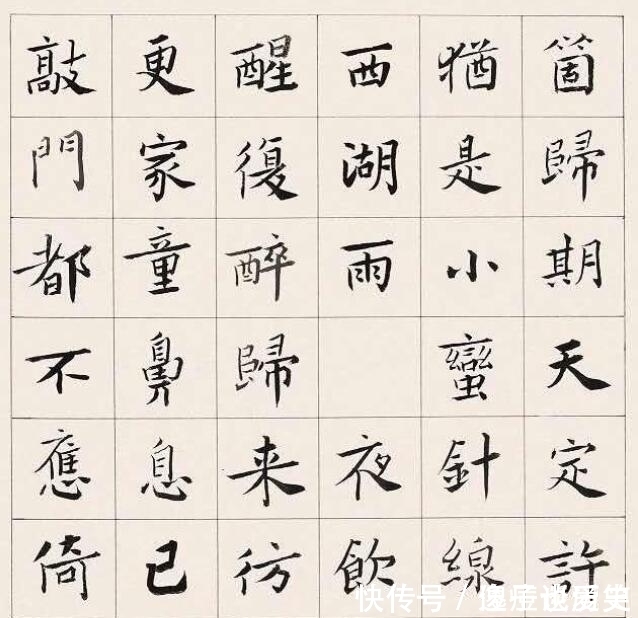 箇歸期天定許
猶是小蠻針線
西湖雨 夜飲
醒復醉歸来彷
更家童鼻息已
敲門都不應倚
快传号 /